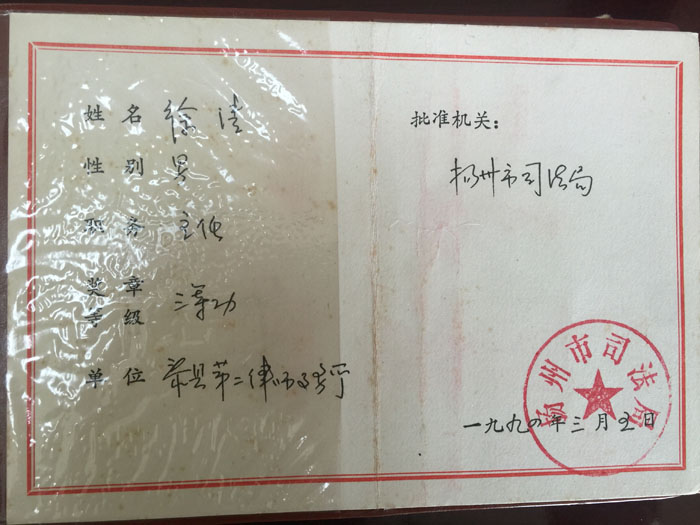 姓名 徐清
性别 男
职务 主任
奖章
等级 三等功
单位 县第二律师事务所
批准机关：
扬州市司法局
扬州市司法局
一九九四年三月五日